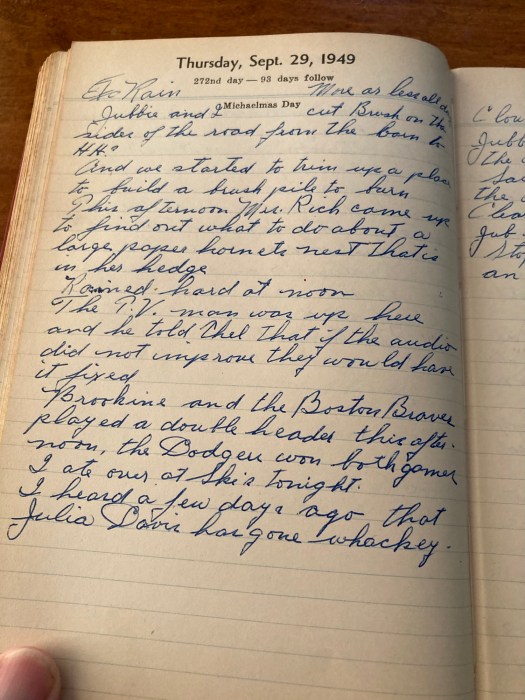 Thursday, Sept. 29, 1949
272nd day — 93 days follow
Michaelmas Day
Rain More or less all d
Jubbie and I cut Brush on the
sides of the road from the barn to
H.H.
And we started to trim up a place
to build a brush pile to burn
This afternoon Mrs. Rich came up
to find out what to do about a
large paper hornets nest that is
in her hedge
Rained hard at noon
The T.V. man was up here
and he told that if the audio
did not improve they would have
it fixed
Brookine and the Boston Braves
played a double header this after-
noon, the Dodgers won both games
I ate over at Ski's tonight.
I heard a few days ago that
Julia Davis has gone whackey.
Clou
Jubb
the
the
Clea
Jub
Sto
an